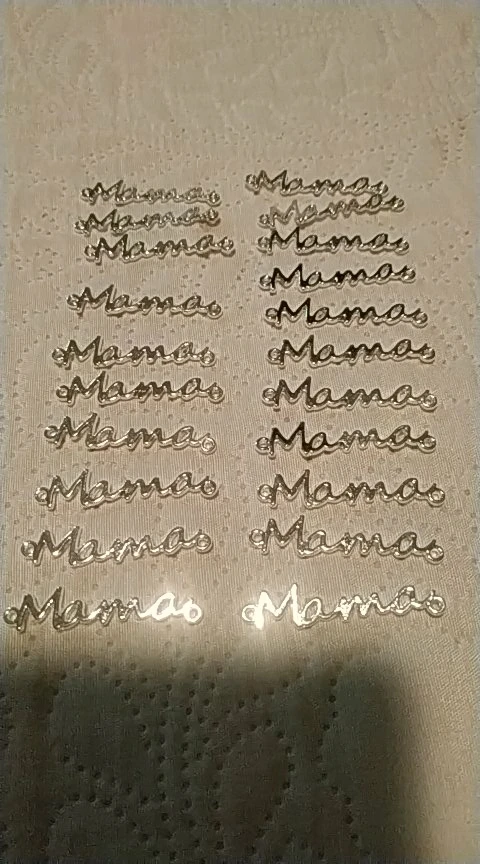 Mama Mama
Mama Mama
Mama Mama
Mama
Mama Mama
Mama Mama
Mama Mama
Mama Mama
Mama Mama
Mama Mama
Mama Mama